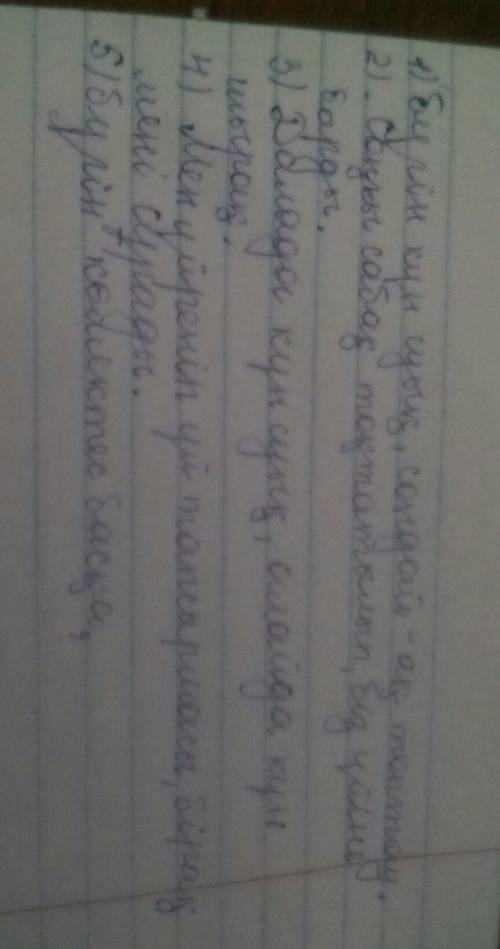 1) бүгін күн суық, сондай-ақ таптау.
2). Соңғы сабақ тоқтатылып, біз үйіне
барды.
3) Далада күн суық, алайда күн
шырақ.
4) Мен үйреніп үй тапсырмасы, бірақ
мені сұрады.
5) бүгін көйлектес басқа,